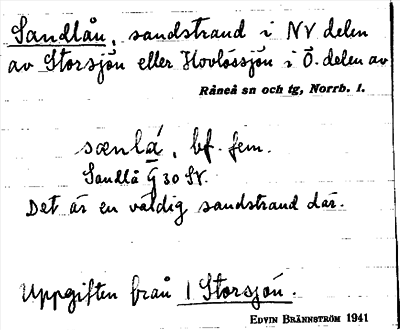 Sandlån, sandstrand i NV delen
av Storsjön eller Hovlössjön i Ö. delen av
Råneå sn och tg, Norrb. l.
sænlá, bf. fem.
Sandlå G 30 SV.
Det är en väldig sandstrand där.
Uppgiften från 1 Storsjön.
EDVIN BRÄNNSTRÖM 1941